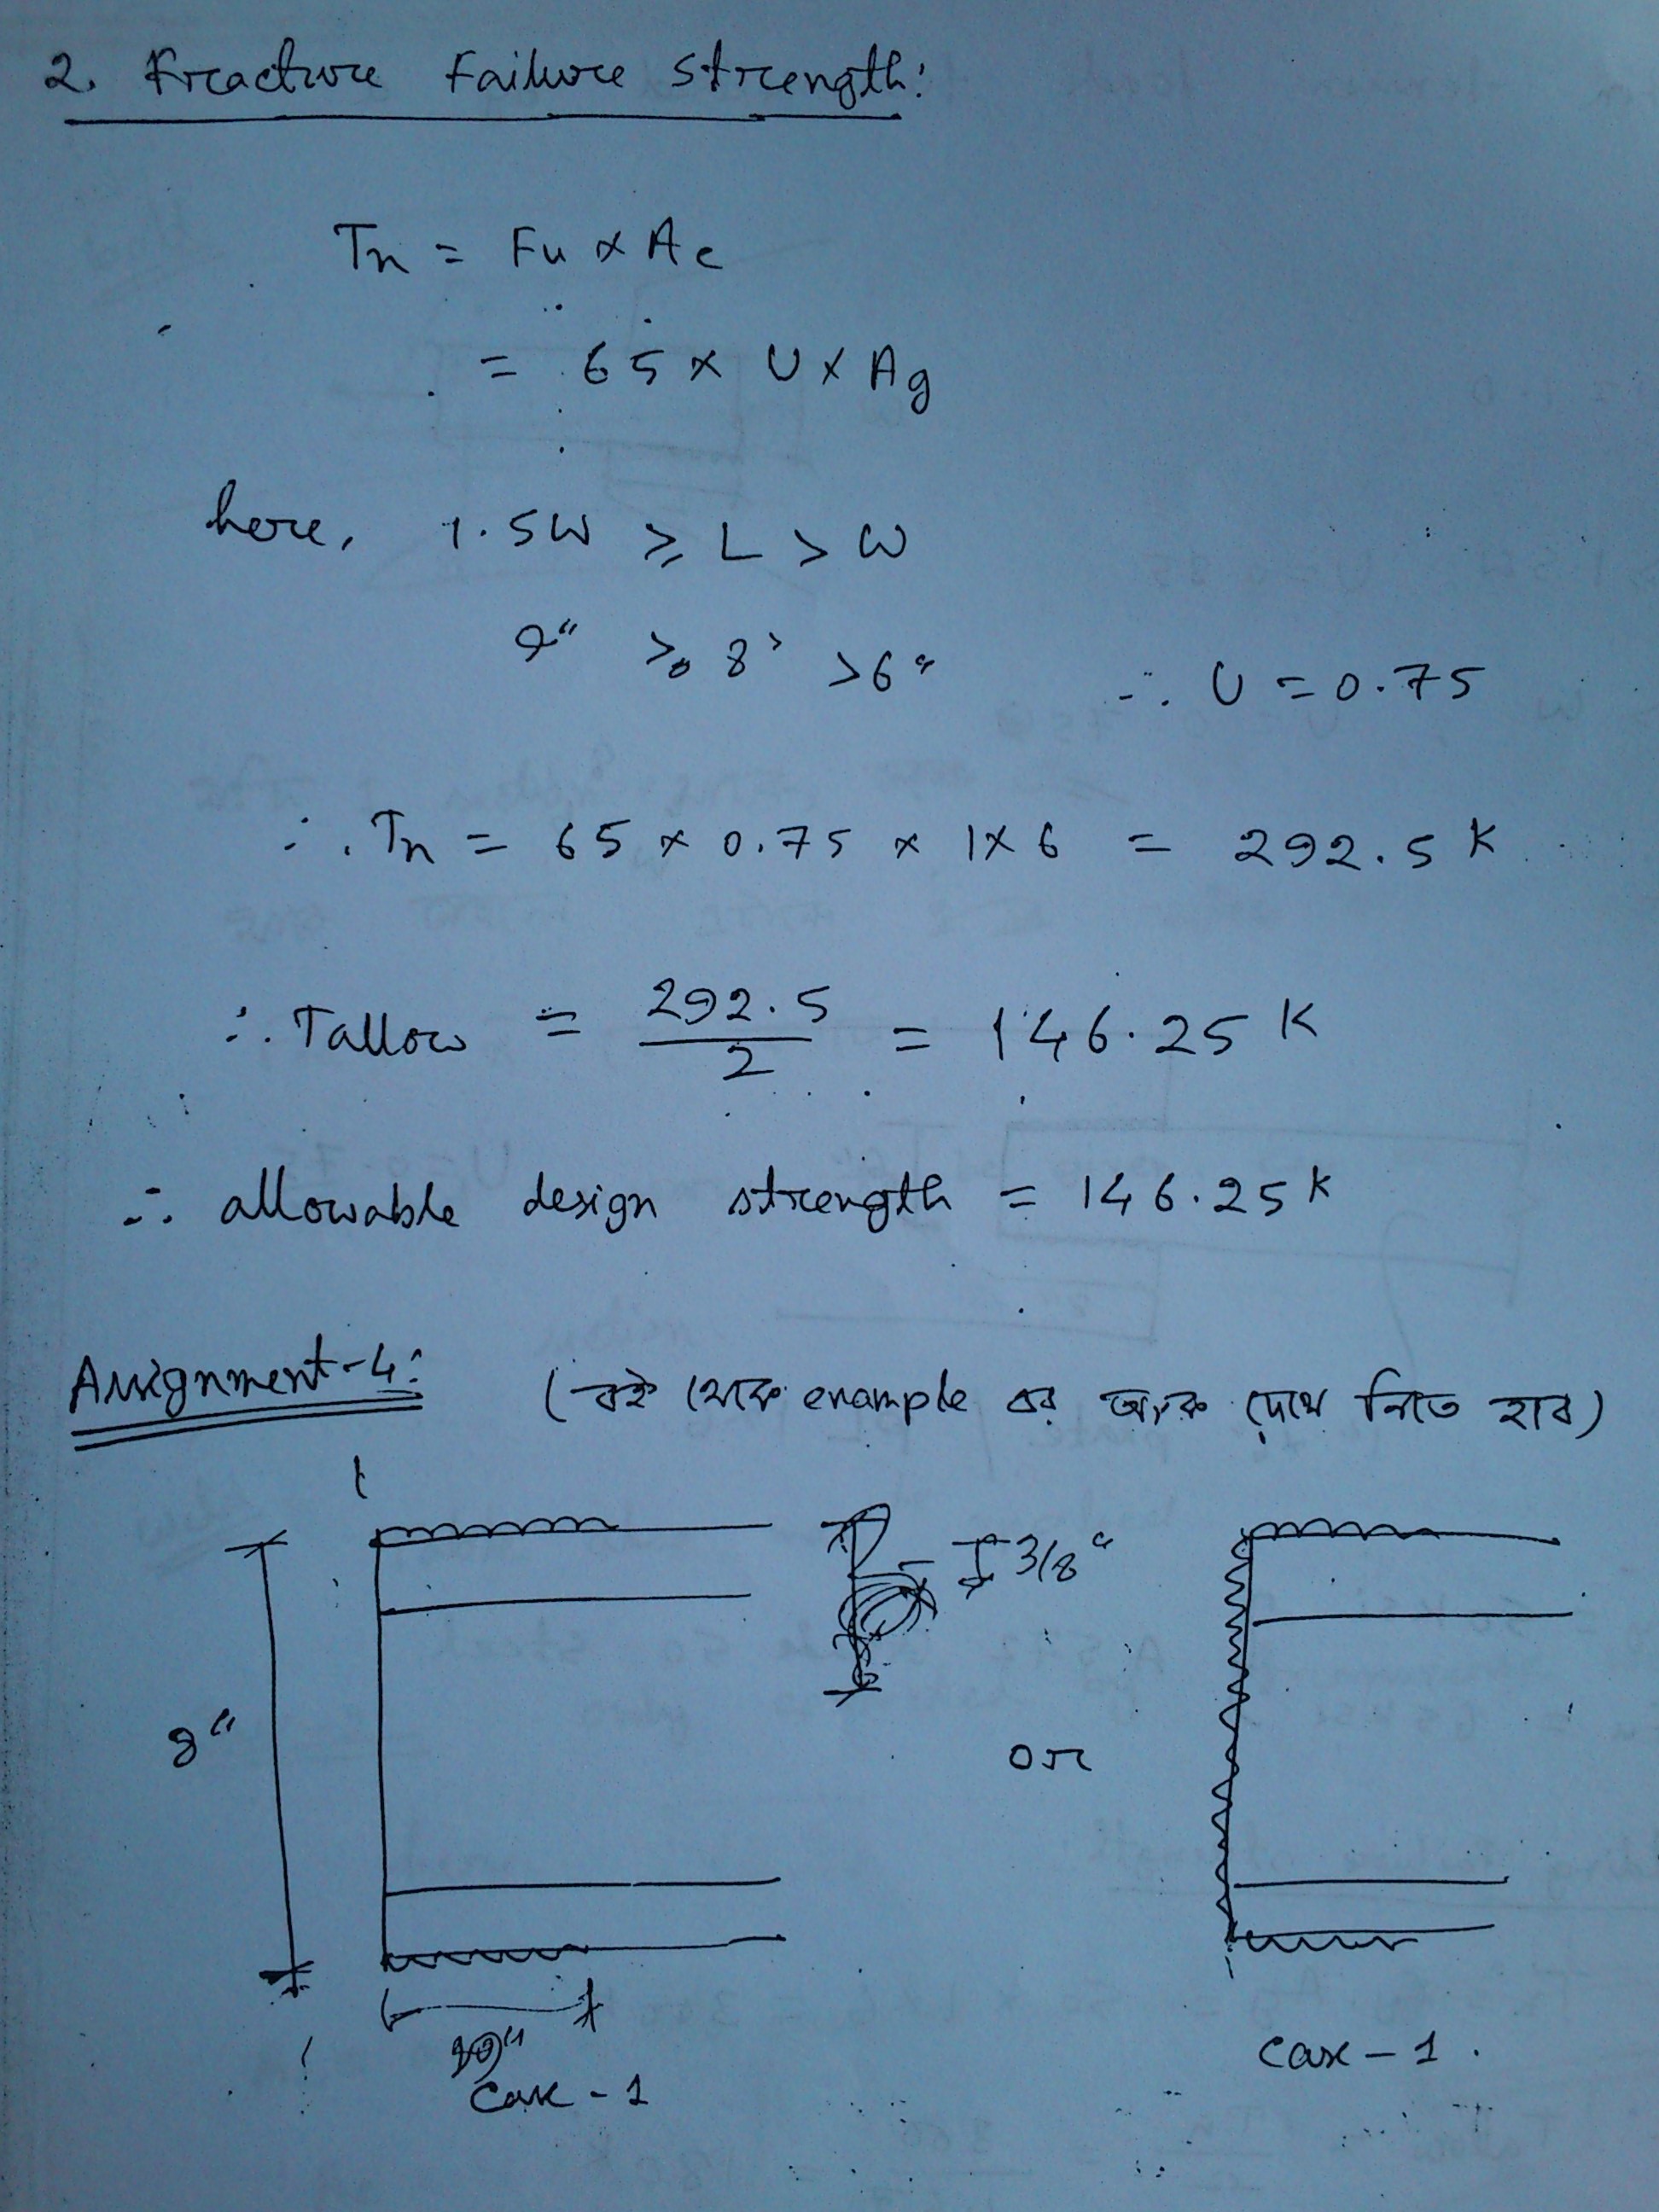 2. Fracture Failure strength:
Tn = Fu x Ae
= 65 x U x Ag
here, 1.5W ≥ L > W
9" ≥ 8" > 6" ∴ U = 0.75
∴ Tn = 65 x 0.75 x 1x6 = 292.5 K
∴ Tallow = 292.5/2 = 146.25 K
∴ allowable design strength = 146.25 K
Assignment-4: (বই থেকে example এর অংক দেখে নিতে হবে)
3/8"
8"
or
Case - 1
Case - 1.